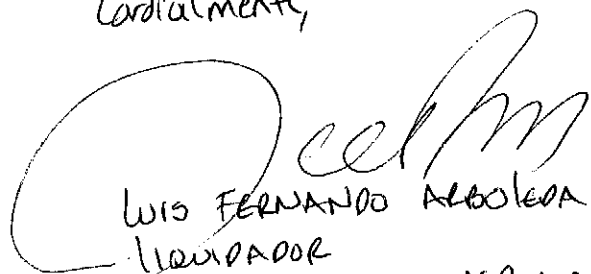 Cordialmente,
LUIS FERNANDO ARBOLEDA
LIQUIDADOR